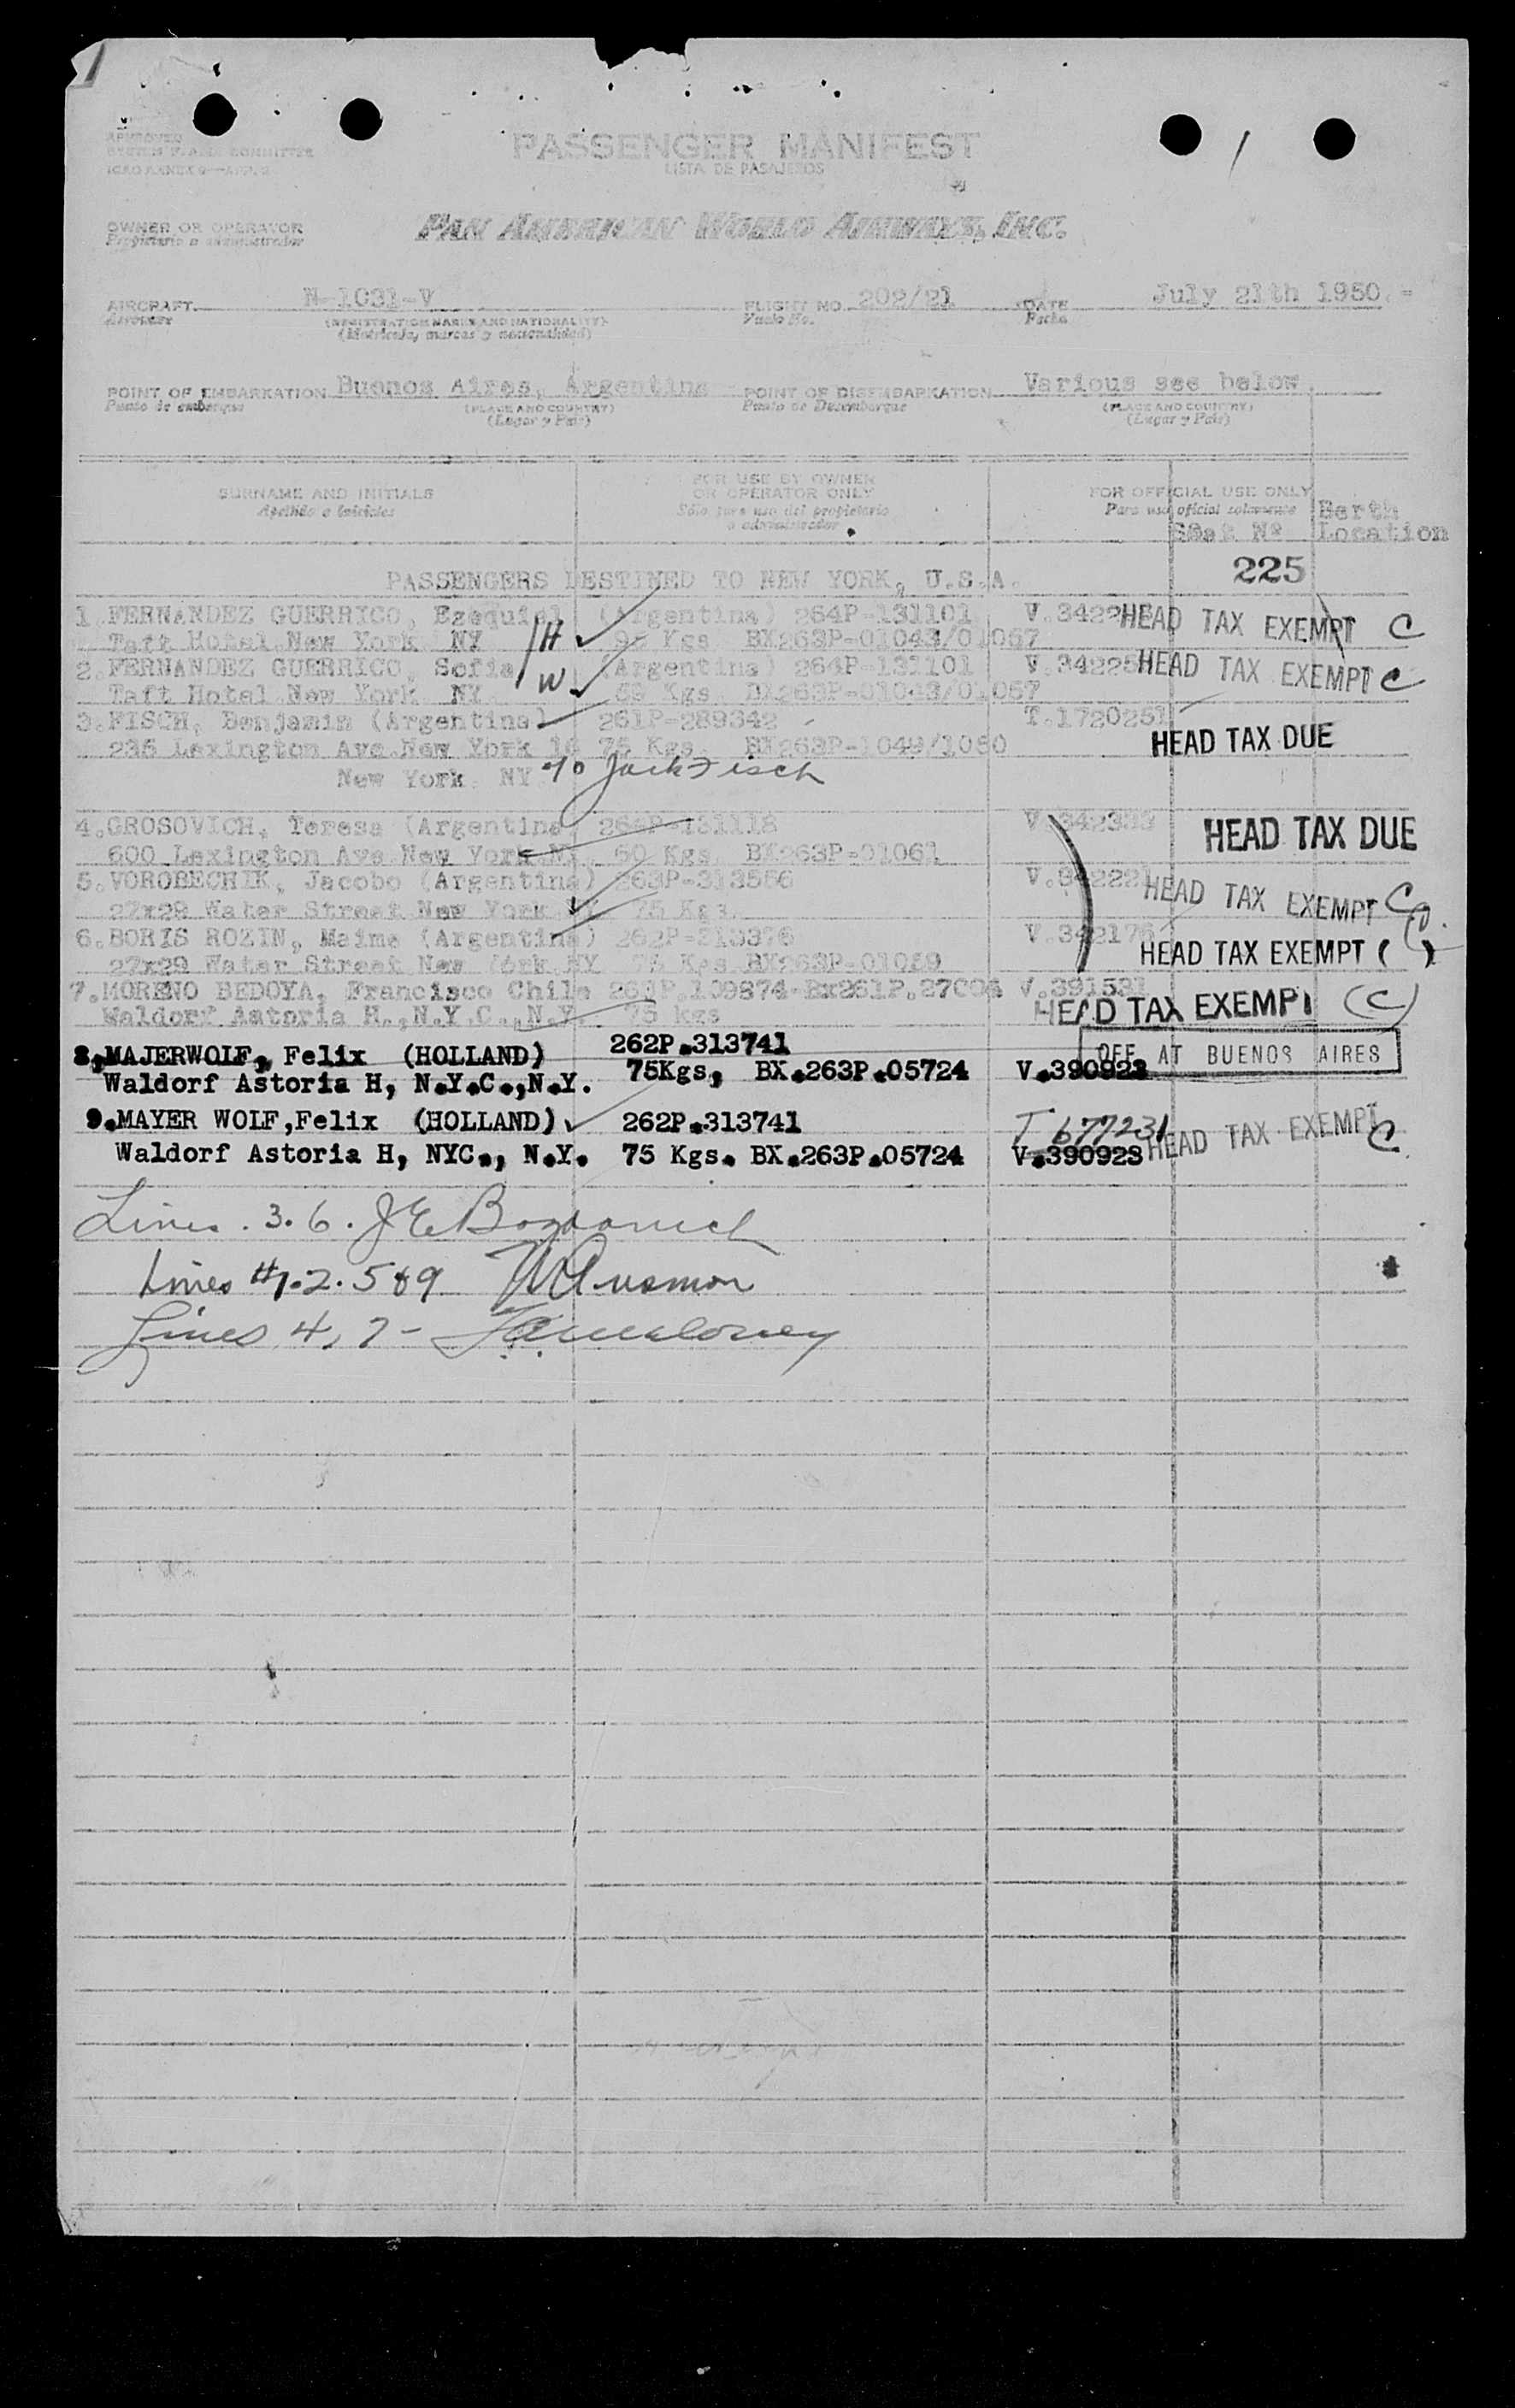 1
PASSENGER MANIFEST
LISTA DE PASAJEROS
PAN AMERICAN WORLD AIRWAYS, INC.
OWNER OR OPERATOR
Propietario o administrador
AIRCRAFT N-1031-V FLIGHT NO. 202/21 DATE July 21th 1950.-
Aeronave (REGISTRATION MARKS AND NATIONALITY) Vuelo No. Fecha
(Matrícula, marcas y nacionalidad)
POINT OF EMBARKATION Buenos Aires, Argentina POINT OF DISEMBARKATION Various see below.
Punto de embarque (PLACE AND COUNTRY) Punto de Desembarque (PLACE AND COUNTRY)
(Lugar y País) (Lugar y País)
SURNAME AND INITIALS FOR USE BY OWNER OR OPERATOR ONLY FOR OFFICIAL USE ONLY
Apellido e iniciales Sólo para uso del propietario o administrador Para uso oficial solamente
Seat Nº Berth Location
PASSENGERS DESTINED TO NEW YORK, U.S.A. 225
1.FERNANDEZ GUERRICO, Ezequiel (Argentina) 264P-131101 HEAD TAX EXEMPT C
Taft Hotel New York NY H Kgs BX263P-01043/01057
2.FERNANDEZ GUERRICO, Sofia (Argentina) 264P-131101 V.34225 HEAD TAX EXEMPT C
Taft Hotel New York NY W Kgs BX263P-01043/01057
3.FISCH, Benjamin (Argentina) 261P-289342 T.1720251
235 Lexington Ave New York 16 75 Kgs. BX263P-1049/1050 HEAD TAX DUE
New York NY c/o Jack Fisch
4.GROSOVICH, Teresa (Argentina) 264P-131118 V.342333 HEAD TAX DUE
600 Lexington Ave New York N 60 Kgs. BX263P-01061
5.VOROBECHIK, Jacobo (Argentina) 263P-313556 V.34222 HEAD TAX EXEMPT C
27x29 Water Street New York NY 75 Kgs.
6.BORIS ROZIN, Maime (Argentina) V.342176
27x29 Water Street New York NY 75 Kgs BX263P-01059 HEAD TAX EXEMPT ( )
7.MORENO BEDOYA, Francisco Chile 264P.109874-Bx261P.27004 V.391531
Waldorf Astoria H.,N.Y.C.,N.Y. 75 kgs HEAD TAX EXEMPT (C)
8,MAJERWOLF, Felix (HOLLAND) 262P.313741 OFF AT BUENOS AIRES
Waldorf Astoria H, N.Y.C.,N.Y. 75Kgs, BX.263P.05724 V.390928
9.MAYER WOLF,Felix (HOLLAND) 262P.313741 T 677231 HEAD TAX EXEMPT C
Waldorf Astoria H, NYC., N.Y. 75 Kgs. BX.263P.05724 V.390928
Lines. 3. 6. J E
Lines #1. 2. 5 & 9
Lines 4, 7 - Maloney